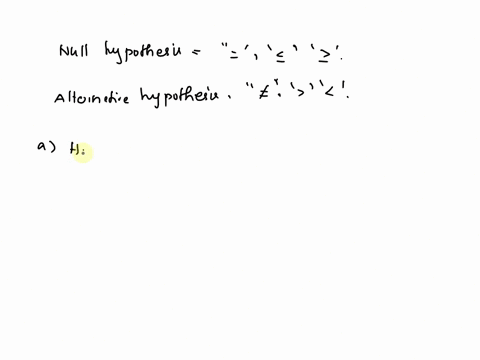 Null hypothesis = "=', '≤' '≥'.
Alternative hypothesis. "≠', '>' '<'.
a) H